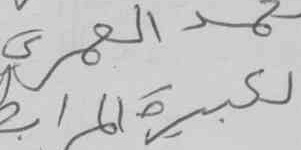 محمد العمري
لكبيرة المرابط